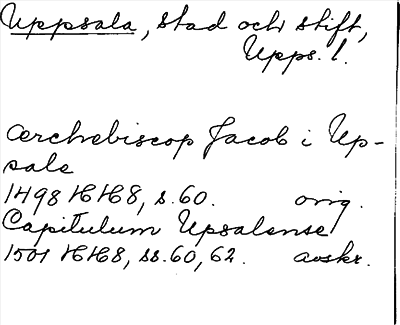 Uppsala, stad och stift,
Upps. l.
Ærchebiscop Jacob i Up-
sale
1498 HH8, s. 60. orig.
Capitulum Upsalense
1501 HH8, ss. 60, 62. avskr.